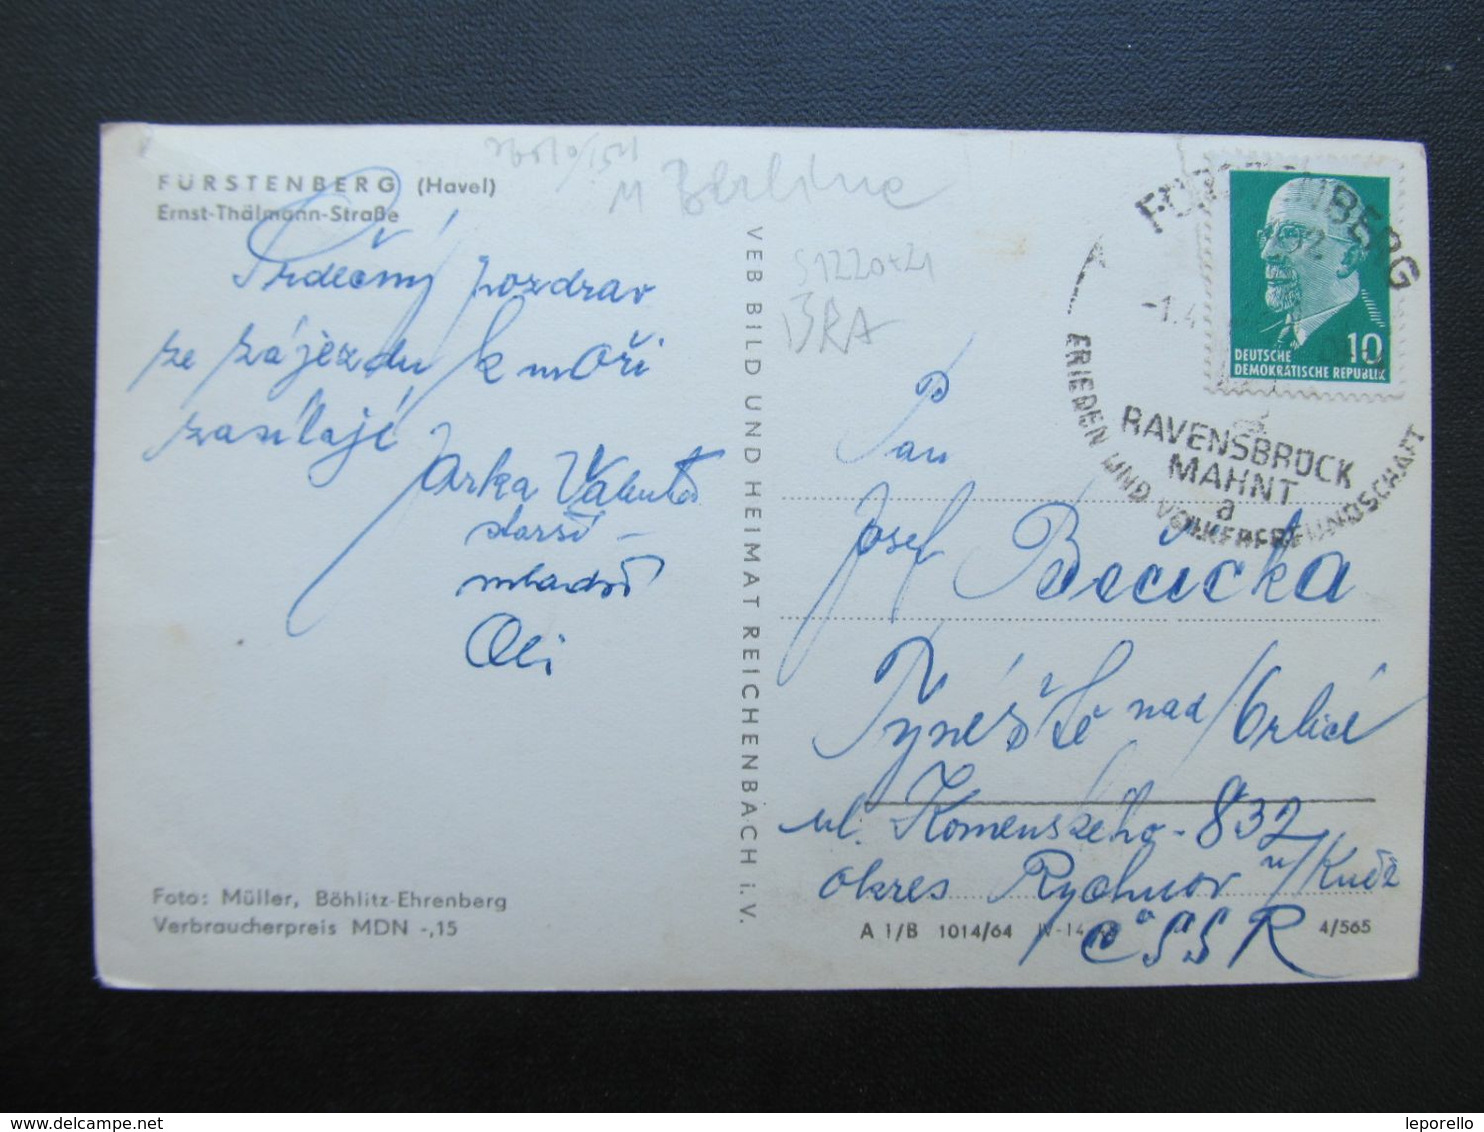 FÜRSTENBERG (Havel)
Ernst-Thälmann-Straße
Srdečný pozdrav
ze zájezdu k moři
zasílají
Jarka Valenta
starší -
mladší
Oli
Foto: Müller, Böhlitz-Ehrenberg
Verbraucherpreis MDN -,15
VEB BILD UND HEIMAT REICHENBACH i. V.
M Berline
S1220421
BRA
FÜRSTENBERG
2
-1.4
FRIEDEN UND VÖLKERFREUNDSCHAFT
RAVENSBRÜCK
MAHNT
a
10
DEUTSCHE
DEMOKRATISCHE REPUBLIK
Pan
Josef Bečička
Týniště nad/Orlicí
ul. Komenského - 832
okres Rychnov n/Kněž
ČSSR
A 1/B 1014/64 IV-14 4/565